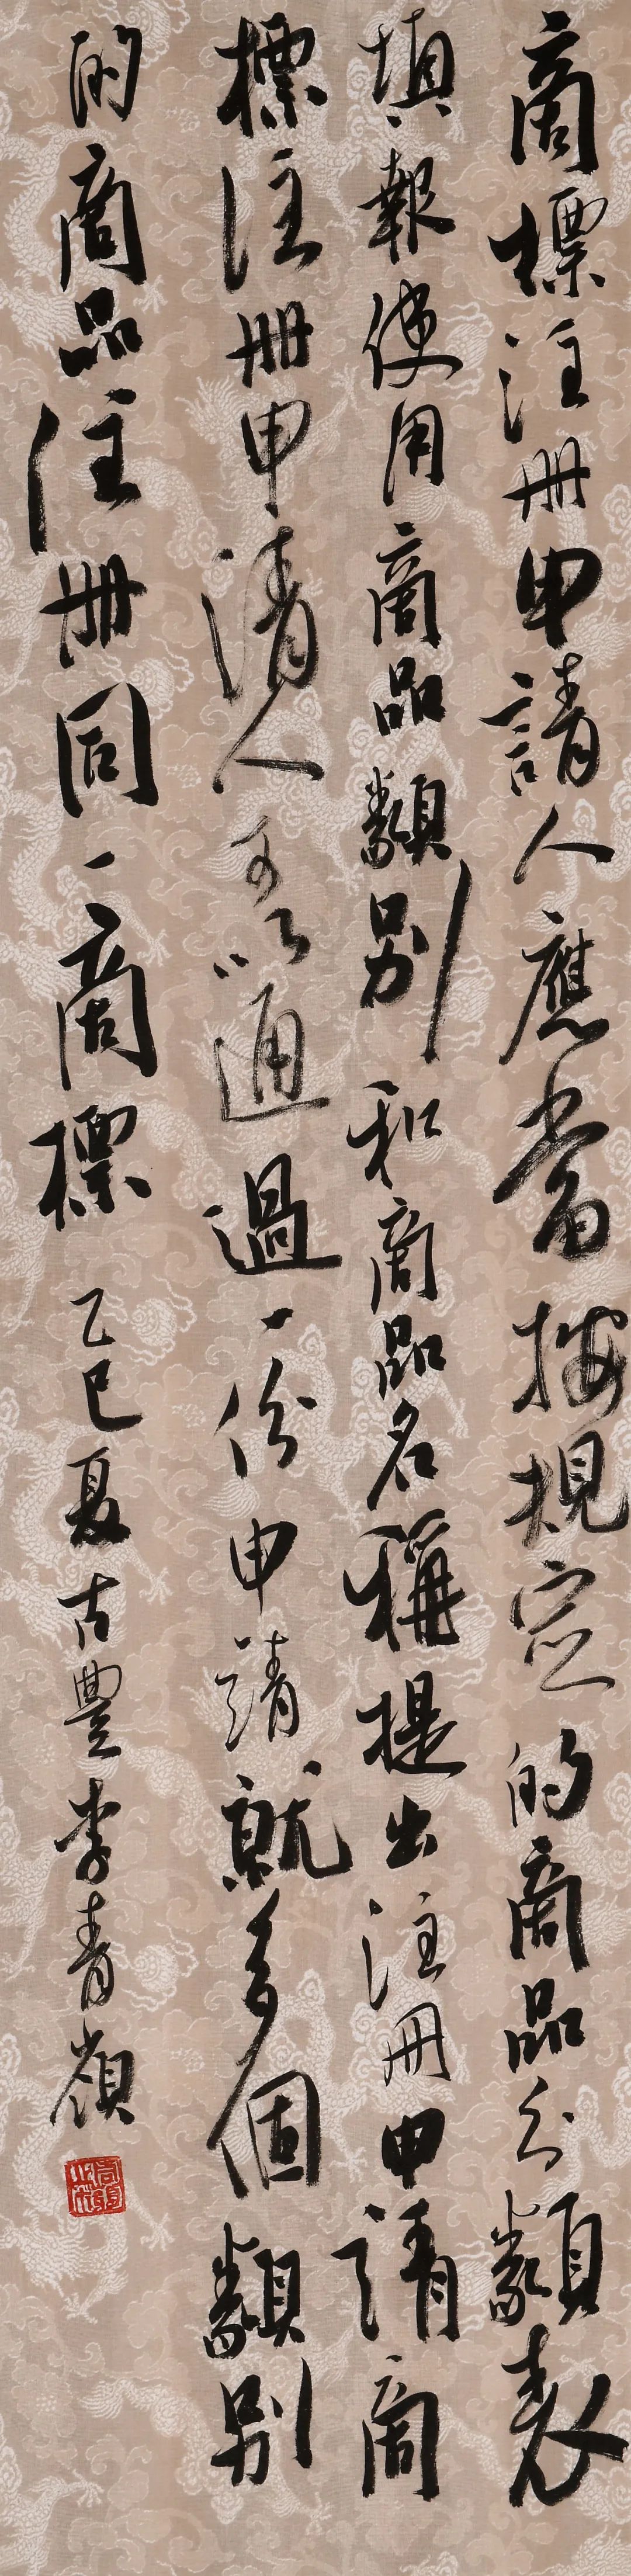 商標注册申請人應當按規定的商品分類表
填報使用商品類別和商品名稱提出注册申請商
標注册申請人可以通過一份申請就多個類別
的商品注册同一商標
乙巳夏古豐李青顏